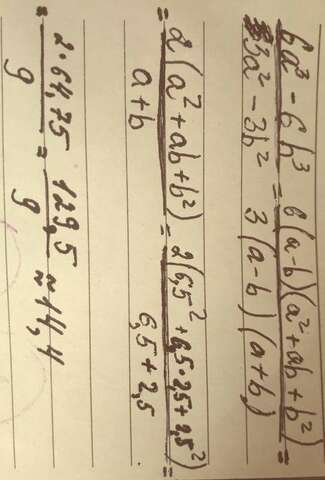 6a³ - 6b³ / 3a² - 3b² = 6(a-b)(a²+ab+b²) / 3(a-b)(a+b) =
= 2(a²+ab+b²) / a+b = 2(6,5²+6,5·2,5+2,5²) / 6,5+2,5 =
= 2·64,75 / 9 = 129,5 / 9 ≈ 14,4